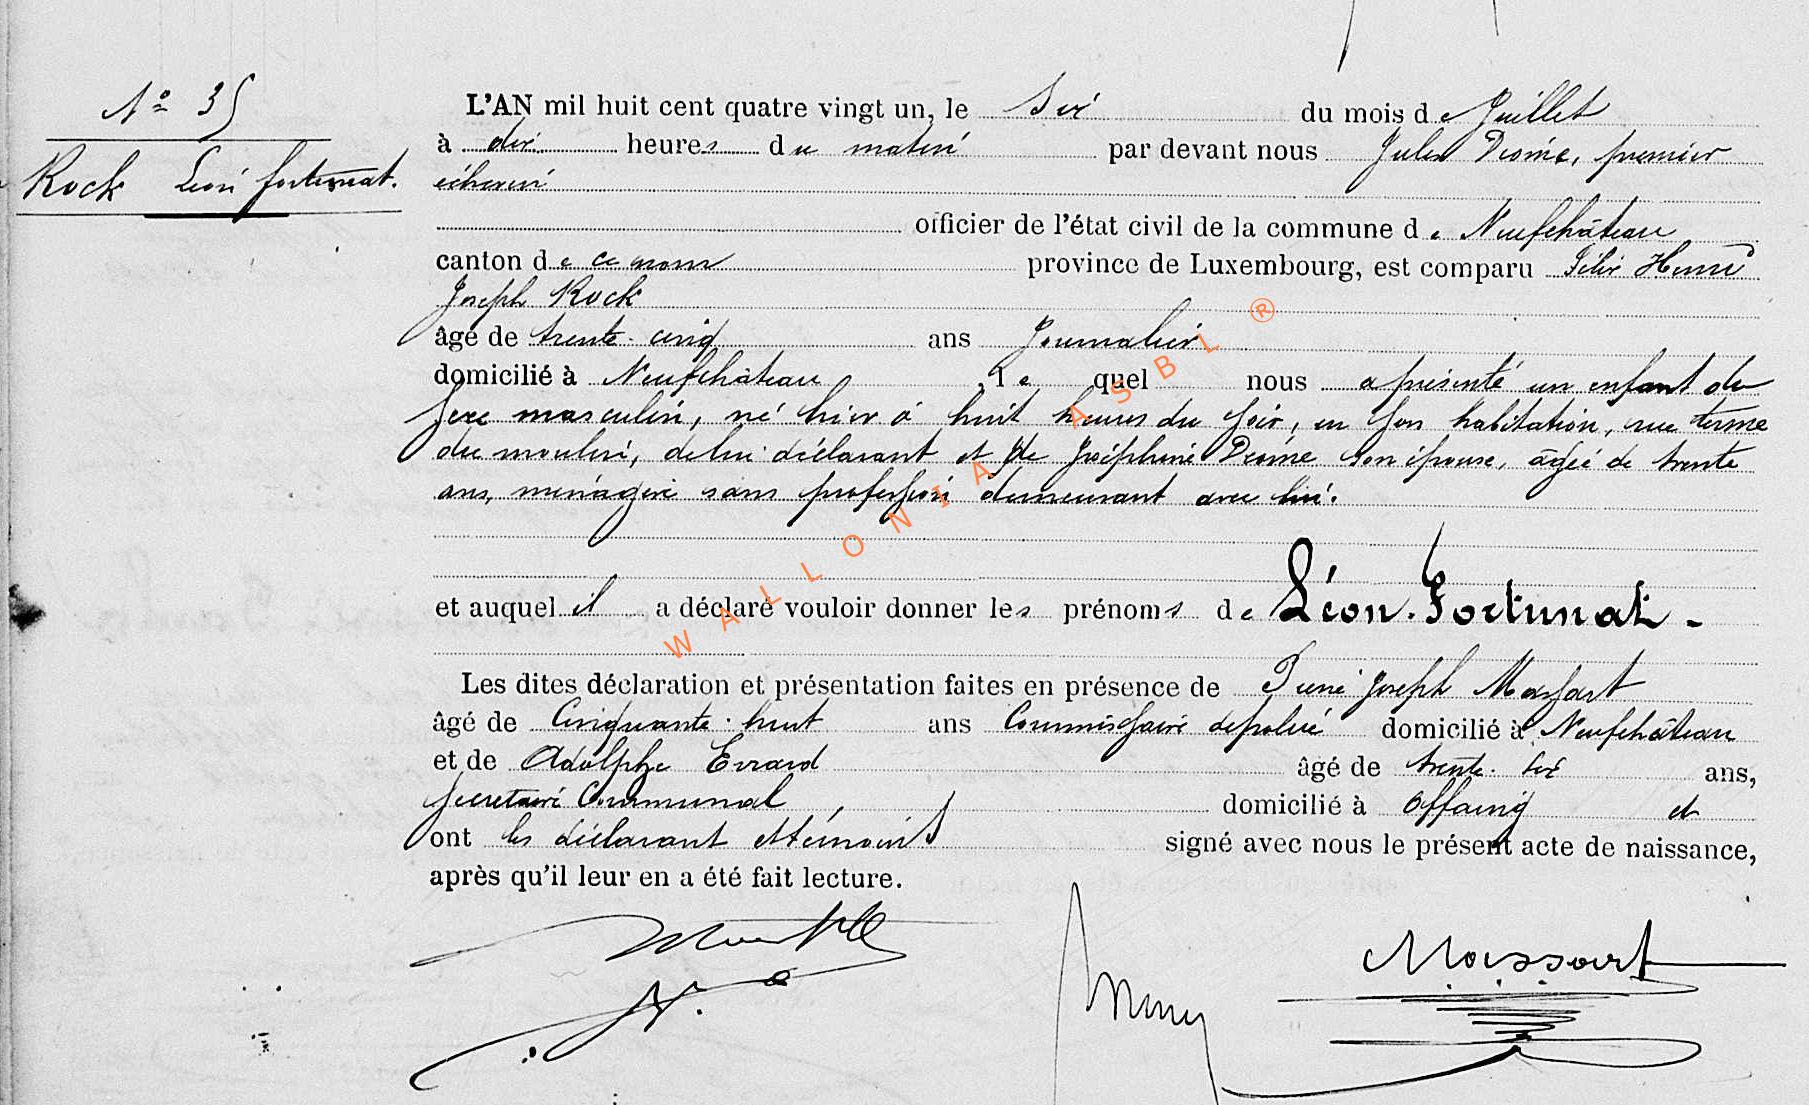 N° 35
Rock Léon fortunat.
L'AN mil huit cent quatre vingt un, le Six du mois de Juillet
à dix heures du matin par devant nous Jules premier
échevin
officier de l'état civil de la commune de Neufchâteau
canton de ce nom province de Luxembourg, est comparu Félix Henri
Joseph Rock
âgé de trente-cinq ans Journalier
domicilié à Neufchâteau, lequel nous a présenté un enfant du
sexe masculin, né hier à huit heures du soir, en son habitation, rue terme
du moulin, de lui déclarant et de Joséphine son épouse, âgée de trente
ans, ménagère sans profession demeurant avec lui.
et auquel il a déclaré vouloir donner les prénoms de Léon-Fortunat-
Les dites déclaration et présentation faites en présence de Joseph Massart
âgé de Cinquante-huit ans Commissaire de police domicilié à Neufchâteau
et de Adolphe Evrard âgé de trente-six ans,
Secrétaire Communal, domicilié à Offaing et
ont les déclarant et témoins signé avec nous le présent acte de naissance,
après qu'il leur en a été fait lecture.
Massart
WALLONIA ASBL ®